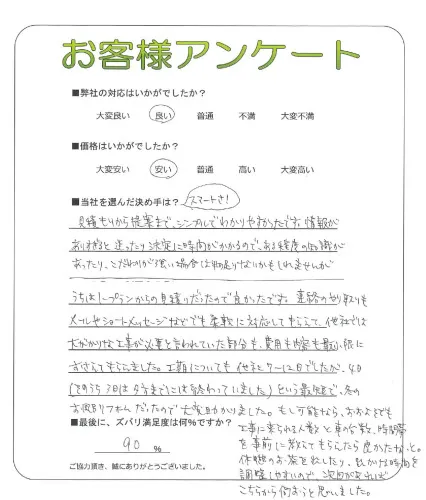 お客様アンケート
■弊社の対応はいかがでしたか？
大変良い 良い 普通 不満 大変不満
■価格はいかがでしたか？
大変安い 安い 普通 高い 大変高い
■当社を選んだ決め手は？ スマートさ！
見積もりから提案まで、シンプルでわかりやすかったです。情報が
ありすぎると迷ったり決定に時間がかかるので、ある程度の知識が
あったり、こだわりが強い場合は物足りないかもしれませんが
うちは一プランからの見積りだったので良かったですね。連絡のやり取りも
メールやショートメッセージなどでも柔軟に対応してもらえて、他社では
大がかりな工事が必要と言われていた部分も、費用も内容も最小限に
おさえてもらえました。工期についても他社7〜12日でしたが、4日
(そのうち3日は夕方までには終わっていました)という最短で、冬の
お風呂リフォームだったので大変助かりました。もし可能なら、おおよそでも
工事に来られる人数と車の台数、時間帯
を事前に教えてもらえたら良かったなと。
休憩のお茶を出したり、出かける時間を
調整しやすいので、次回があれば
こちらから伺おうと思いました。
■最後に、ズバリ満足度は何％ですか？
90 %
ご協力頂き、誠にありがとうございました。